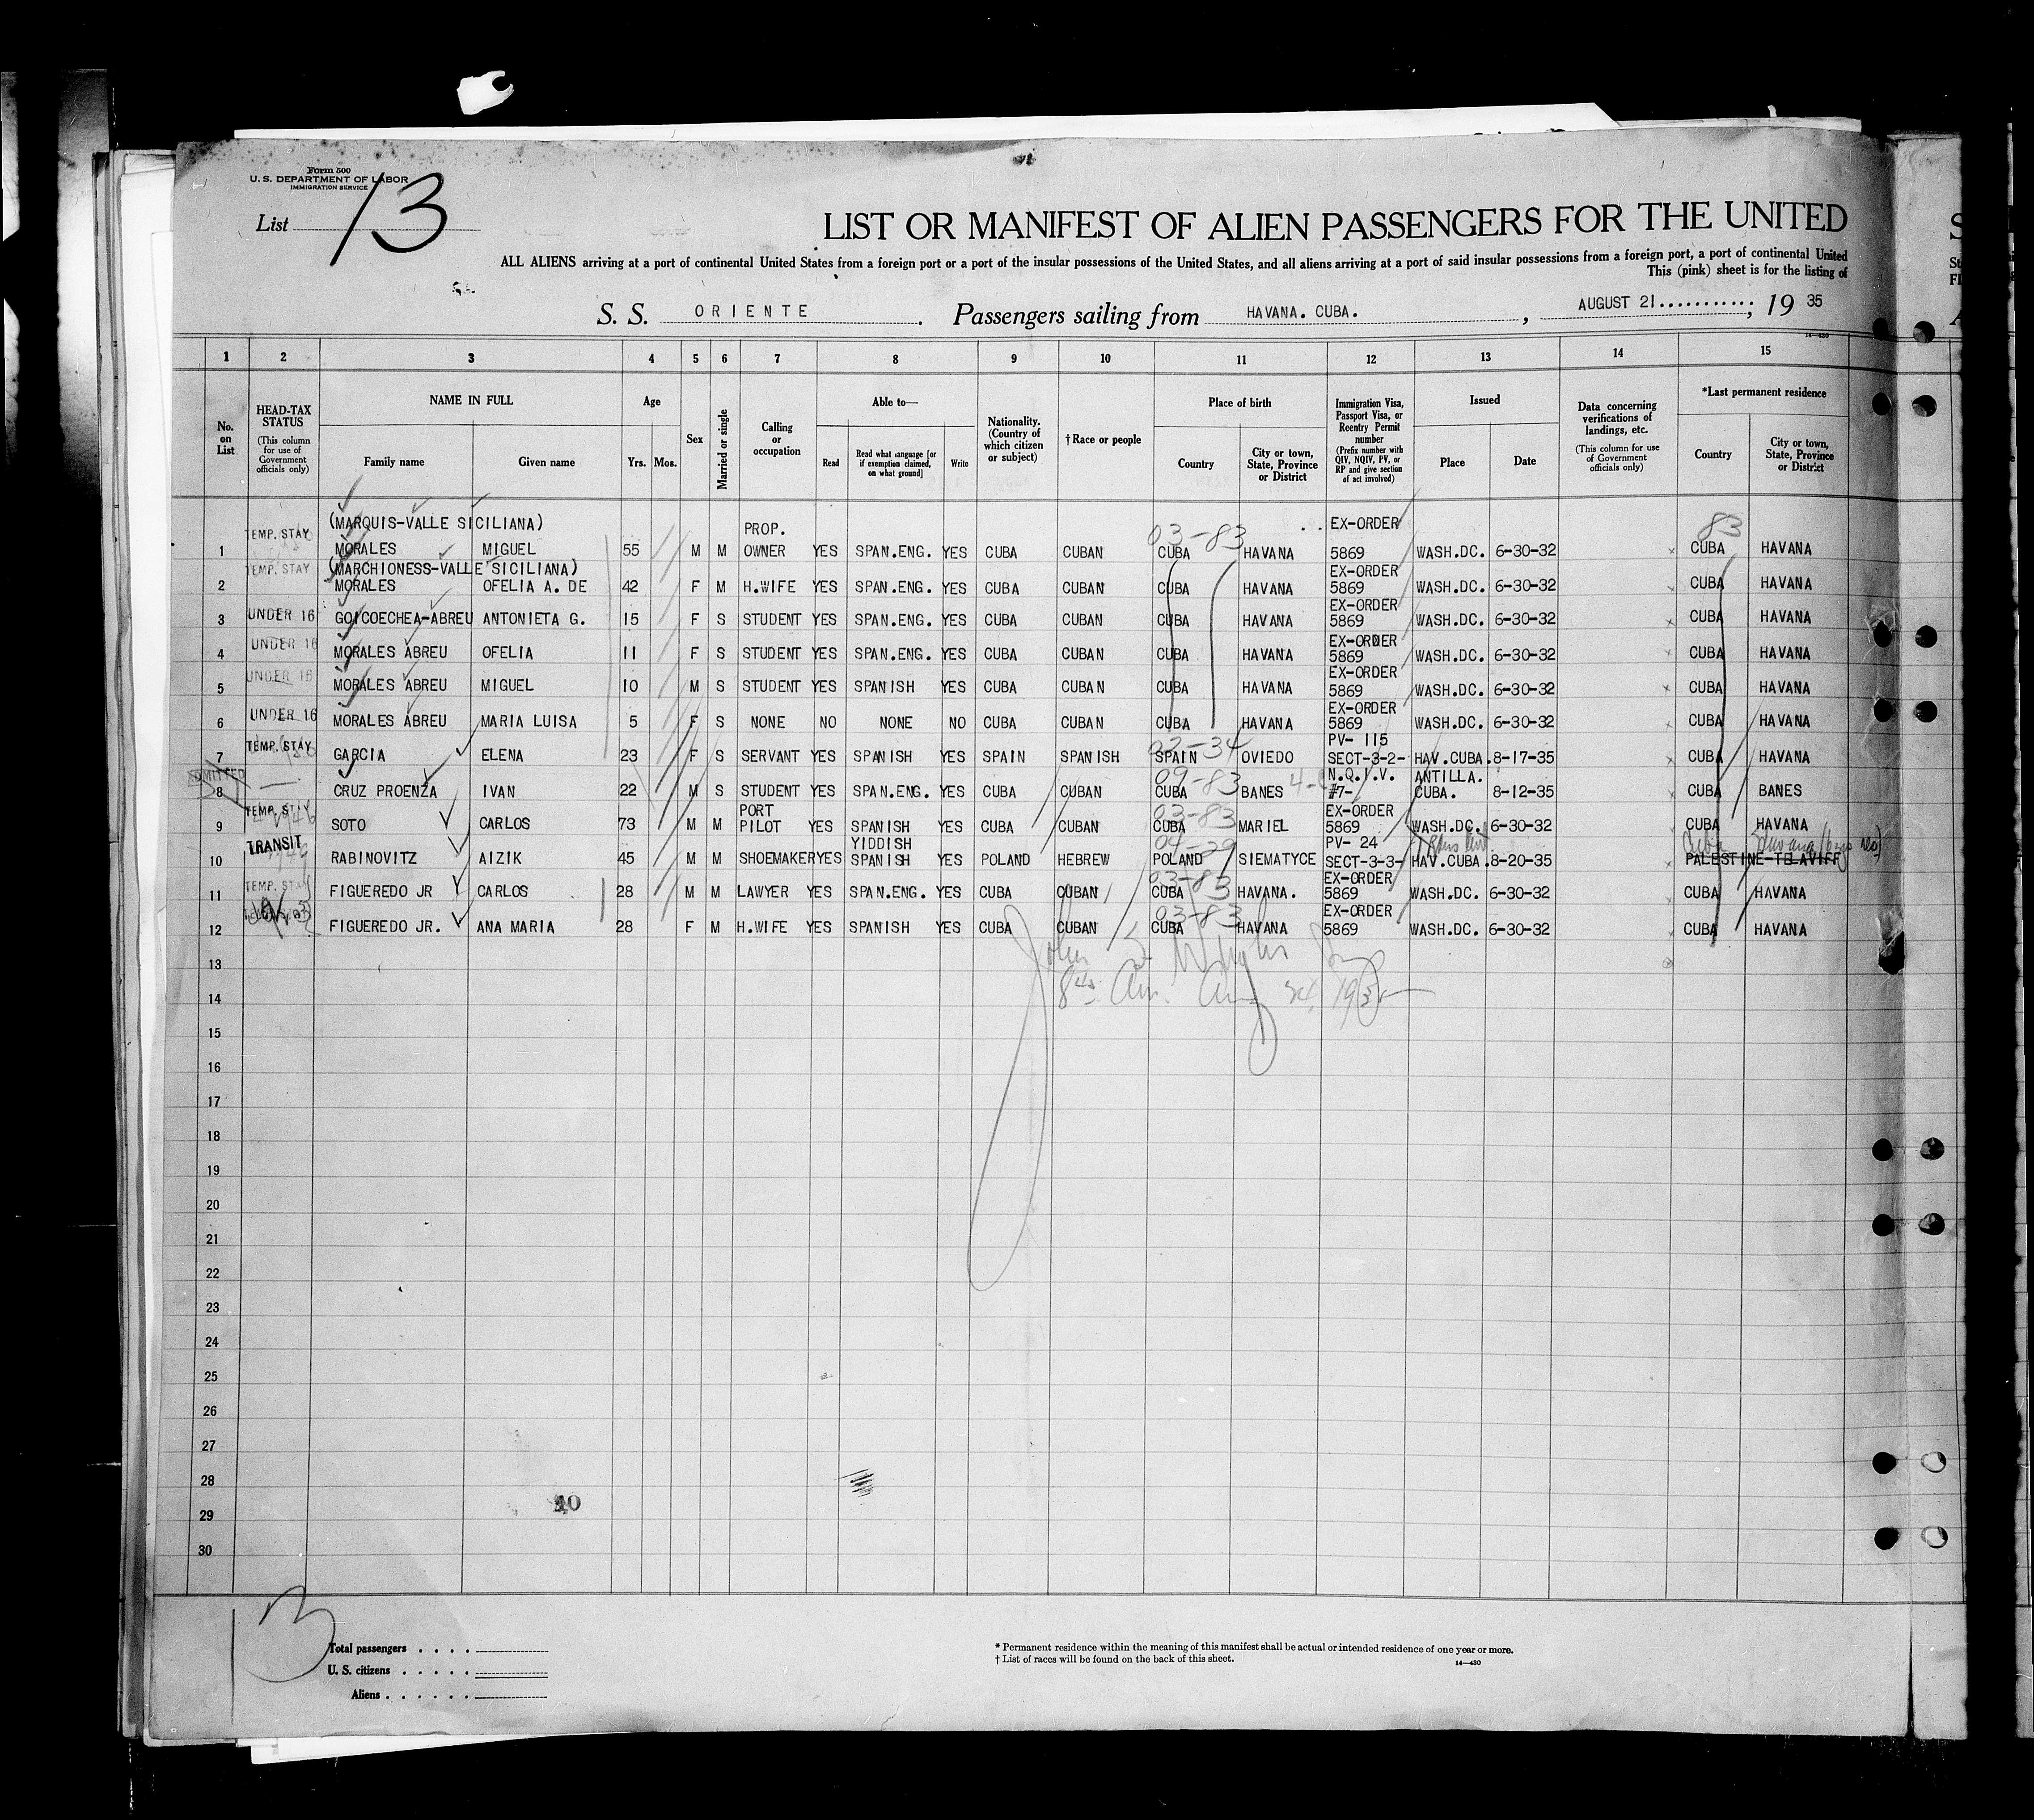 Form 500
U. S. DEPARTMENT OF LABOR
IMMIGRATION SERVICE
List 13
LIST OR MANIFEST OF ALIEN PASSENGERS FOR THE UNITED
ALL ALIENS arriving at a port of continental United States from a foreign port or a port of the insular possessions of the United States, and all aliens arriving at a port of said insular possessions from a foreign port, a port of continental United
This (pink) sheet is for the listing of
S. S. ORIENTE. Passengers sailing from HAVANA. CUBA., AUGUST 21...........; 19 35
14—430
1 2 3 4 5 6 7 8 9 10 11 12 13 14 15
No. on List
HEAD-TAX STATUS (This column for use of Government officials only)
NAME IN FULL
Family name Given name
Age
Yrs. Mos.
Sex
Married or single
Calling or occupation
Able to—
Read Read what language [or if exemption claimed, on what ground] Write
Nationality. (Country of which citizen or subject)
†Race or people
Place of birth
Country City or town, State, Province or District
Immigration Visa, Passport Visa, or Reentry Permit number (Prefix number with QIV, NQIV, PV, or RP and give section of act involved)
Issued
Place Date
Data concerning verifications of landings, etc. (This column for use of Government officials only)
*Last permanent residence
Country City or town, State, Province or District
(MARQUIS-VALLE SICILIANA) PROP. 03-83 EX-ORDER 83
1 TEMP. STAY MORALES MIGUEL 55 M M OWNER YES SPAN.ENG. YES CUBA CUBAN CUBA HAVANA 5869 WASH.DC. 6-30-32 CUBA HAVANA
(MARCHIONESS-VALLE SICILIANA) EX-ORDER
2 TEMP. STAY MORALES OFELIA A. DE 42 F M H.WIFE YES SPAN.ENG. YES CUBA CUBAN CUBA HAVANA 5869 WASH.DC. 6-30-32 CUBA HAVANA
EX-ORDER
3 UNDER 16 GOICOECHEA-ABREU ANTONIETA G. 15 F S STUDENT YES SPAN.ENG. YES CUBA CUBAN CUBA HAVANA 5869 WASH.DC. 6-30-32 CUBA HAVANA
EX-ORDER
4 UNDER 16 MORALES ABREU OFELIA 11 F S STUDENT YES SPAN.ENG. YES CUBA CUBAN CUBA HAVANA 5869 WASH.DC. 6-30-32 CUBA HAVANA
EX-ORDER
5 UNDER 16 MORALES ABREU MIGUEL 10 M S STUDENT YES SPANISH YES CUBA CUBAN CUBA HAVANA 5869 WASH.DC. 6-30-32 CUBA HAVANA
EX-ORDER
6 UNDER 16 MORALES ABREU MARIA LUISA 5 F S NONE NO NONE NO CUBA CUBAN CUBA HAVANA 5869 WASH.DC. 6-30-32 CUBA HAVANA
02-34 PV- 115
7 TEMP. STAY GARCIA ELENA 23 F S SERVANT YES SPANISH YES SPAIN SPANISH SPAIN OVIEDO SECT-3-2- HAV.CUBA. 8-17-35 CUBA HAVANA
ADMITTED 09-83 N.Q.I.V. ANTILLA.
8 CRUZ PROENZA IVAN 22 M S STUDENT YES SPAN.ENG. YES CUBA CUBAN CUBA BANES #7- CUBA. 8-12-35 CUBA BANES
PORT 03-83 EX-ORDER
9 TEMP. STAY SOTO CARLOS 73 M M PILOT YES SPANISH YES CUBA CUBAN CUBA MARIEL 5869 WASH.DC. 6-30-32 CUBA HAVANA
YIDDISH 04-29 PV- 24 Cuba Havana
10 TRANSIT RABINOVITZ AIZIK 45 M M SHOEMAKER YES SPANISH YES POLAND HEBREW POLAND SIEMATYCE SECT-3-3- HAV.CUBA. 8-20-35 PALESTINE-TELAVIFF
03-83 EX-ORDER
11 TEMP. STAY FIGUEREDO JR CARLOS 28 M M LAWYER YES SPAN.ENG. YES CUBA CUBAN CUBA HAVANA. 5869 WASH.DC. 6-30-32 CUBA HAVANA
03-83 EX-ORDER
12 FIGUEREDO JR. ANA MARIA 28 F M H.WIFE YES SPANISH YES CUBA CUBAN CUBA HAVANA 5869 WASH.DC. 6-30-32 CUBA HAVANA
13
14
15
16
17
18
19
20
21
22
23
24
25
26
27
28
29
30
13
Total passengers . . . .
U. S. citizens . . . . .
Aliens . . . . . .
* Permanent residence within the meaning of this manifest shall be actual or intended residence of one year or more.
† List of races will be found on the back of this sheet.
14—430